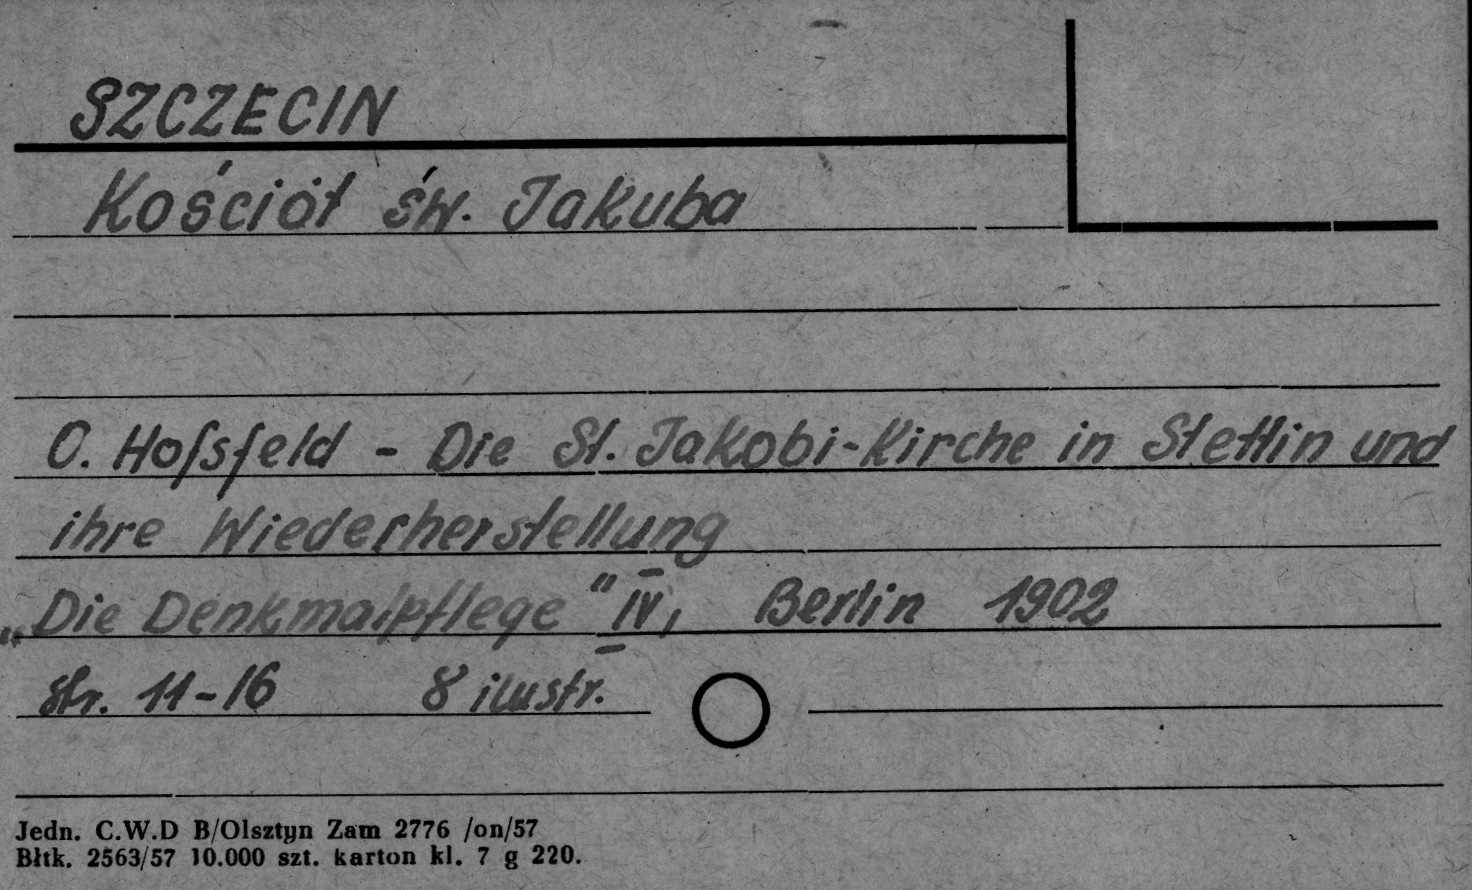 SZCZECIN
Kościół św. Jakuba
O. Hoſsfeld - Die St. Jakobi-Kirche in Stettin und
ihre Wiederherstellung
„Die Denkmalpflege" IV, Berlin 1902
str. 11-16 8 ilustr.
Jedn. C.W.D B/Olsztyn Zam 2776 /on/57
Błtk. 2563/57 10.000 szt. karton kl. 7 g 220.